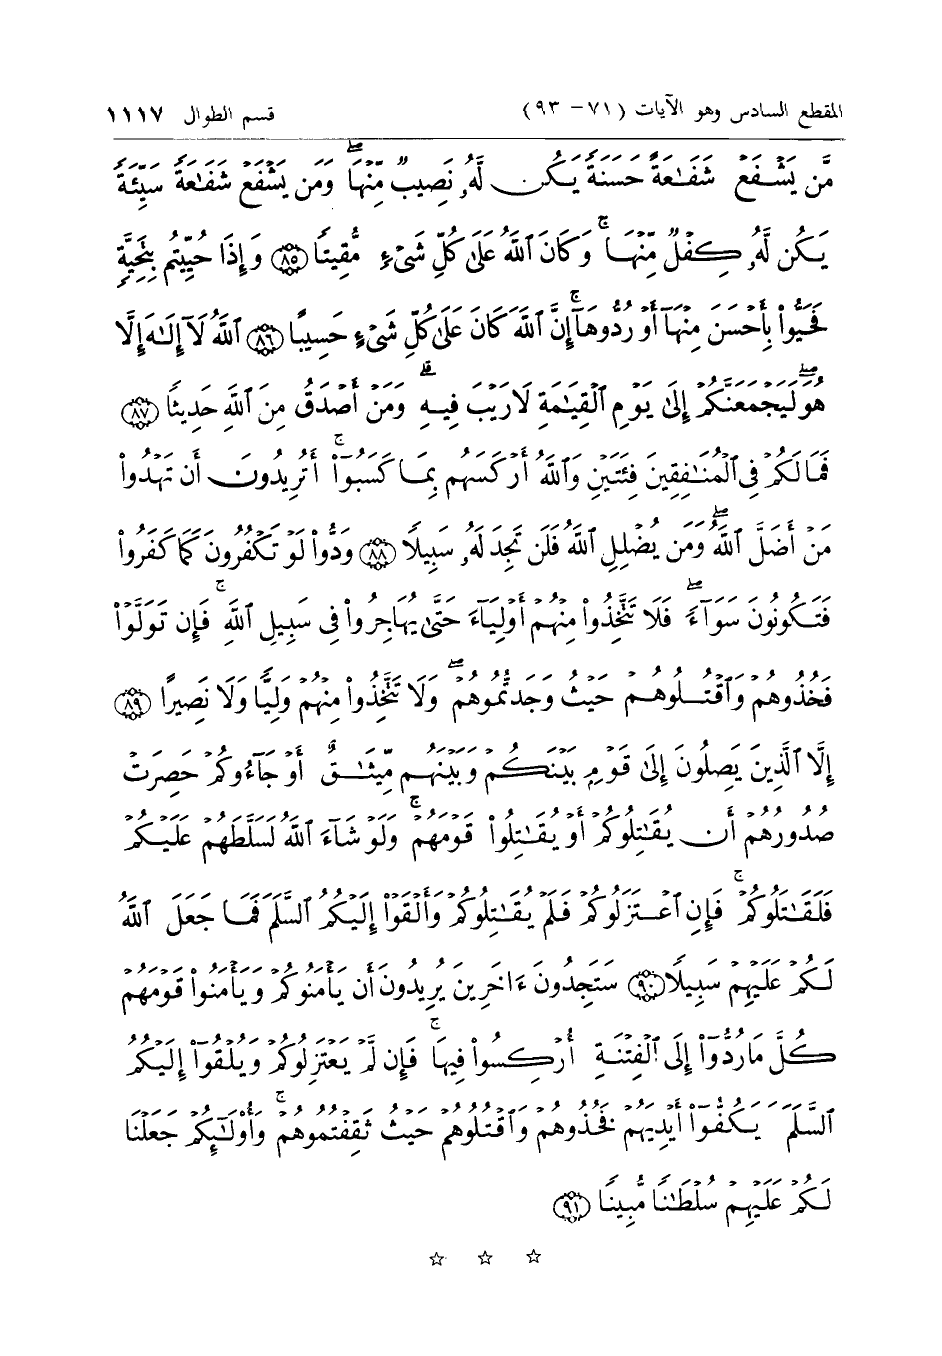 المقطع السادس وهو الآيات (٧١ - ٩٣) قسم الطوال ١١١٧
مَّن يَشْفَعْ شَفَـٰعَةً حَسَنَةً يَكُن لَّهُۥ نَصِيبٌ مِّنْهَا ۖ وَمَن يَشْفَعْ شَفَـٰعَةً سَيِّئَةً
يَكُن لَّهُۥ كِفْلٌ مِّنْهَا ۗ وَكَانَ ٱللَّهُ عَلَىٰ كُلِّ شَىْءٍ مُّقِيتًا ﴿٨٥﴾ وَإِذَا حُيِّيتُم بِتَحِيَّةٍ
فَحَيُّوا۟ بِأَحْسَنَ مِنْهَآ أَوْ رُدُّوهَآ ۗ إِنَّ ٱللَّهَ كَانَ عَلَىٰ كُلِّ شَىْءٍ حَسِيبًا ﴿٨٦﴾ ٱللَّهُ لَآ إِلَـٰهَ إِلَّا
هُوَ ۖ لَيَجْمَعَنَّكُمْ إِلَىٰ يَوْمِ ٱلْقِيَـٰمَةِ لَا رَيْبَ فِيهِ ۗ وَمَنْ أَصْدَقُ مِنَ ٱللَّهِ حَدِيثًا ﴿٨٧﴾
فَمَا لَكُمْ فِى ٱلْمُنَـٰفِقِينَ فِئَتَيْنِ وَٱللَّهُ أَرْكَسَهُم بِمَا كَسَبُوٓا۟ ۚ أَتُرِيدُونَ أَن تَهْدُوا۟
مَنْ أَضَلَّ ٱللَّهُ ۖ وَمَن يُضْلِلِ ٱللَّهُ فَلَن تَجِدَ لَهُۥ سَبِيلًا ﴿٨٨﴾ وَدُّوا۟ لَوْ تَكْفُرُونَ كَمَا كَفَرُوا۟
فَتَكُونُونَ سَوَآءً ۖ فَلَا تَتَّخِذُوا۟ مِنْهُمْ أَوْلِيَآءَ حَتَّىٰ يُهَاجِرُوا۟ فِى سَبِيلِ ٱللَّهِ ۚ فَإِن تَوَلَّوْا۟
فَخُذُوهُمْ وَٱقْتُلُوهُمْ حَيْثُ وَجَدتُّمُوهُمْ ۖ وَلَا تَتَّخِذُوا۟ مِنْهُمْ وَلِيًّا وَلَا نَصِيرًا ﴿٨٩﴾
إِلَّا ٱلَّذِينَ يَصِلُونَ إِلَىٰ قَوْمٍۭ بَيْنَكُمْ وَبَيْنَهُم مِّيثَـٰقٌ أَوْ جَآءُوكُمْ حَصِرَتْ
صُدُورُهُمْ أَن يُقَـٰتِلُوكُمْ أَوْ يُقَـٰتِلُوا۟ قَوْمَهُمْ ۚ وَلَوْ شَآءَ ٱللَّهُ لَسَلَّطَهُمْ عَلَيْكُمْ
فَلَقَـٰتَلُوكُمْ ۚ فَإِنِ ٱعْتَزَلُوكُمْ فَلَمْ يُقَـٰتِلُوكُمْ وَأَلْقَوْا۟ إِلَيْكُمُ ٱلسَّلَمَ فَمَا جَعَلَ ٱللَّهُ
لَكُمْ عَلَيْهِمْ سَبِيلًا ﴿٩٠﴾ سَتَجِدُونَ ءَاخَرِينَ يُرِيدُونَ أَن يَأْمَنُوكُمْ وَيَأْمَنُوا۟ قَوْمَهُمْ
كُلَّ مَا رُدُّوٓا۟ إِلَى ٱلْفِتْنَةِ أُرْكِسُوا۟ فِيهَا ۚ فَإِن لَّمْ يَعْتَزِلُوكُمْ وَيُلْقُوٓا۟ إِلَيْكُمُ
ٱلسَّلَمَ وَيَكُفُّوٓا۟ أَيْدِيَهُمْ فَخُذُوهُمْ وَٱقْتُلُوهُمْ حَيْثُ ثَقِفْتُمُوهُمْ ۚ وَأُو۟لَـٰٓئِكُمْ جَعَلْنَا
لَكُمْ عَلَيْهِمْ سُلْطَـٰنًا مُّبِينًا ﴿٩١﴾
☆ ☆ ☆